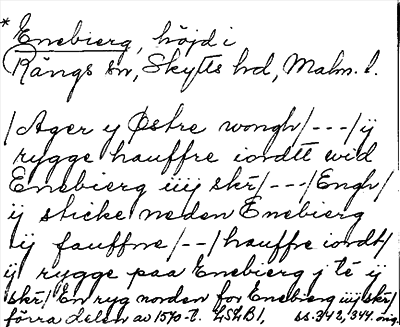 * Enebierg, höjd i
Rängs sn, Skytts hd, Malm. l.
/Ager y Østre wongh/---/ij
rygge hauffre iordtt wid
Enebierg iiij skr/---/Engh/
ij sticke neden Enebierg
ij fauffne/--/hauffre iordt/
ij rygge paa Enebierg j té ij
skr/ En ryg norden for Enebierg iiij skr/
förra delen av 1570-t. LSLB1, ss. 342, 344. orig.